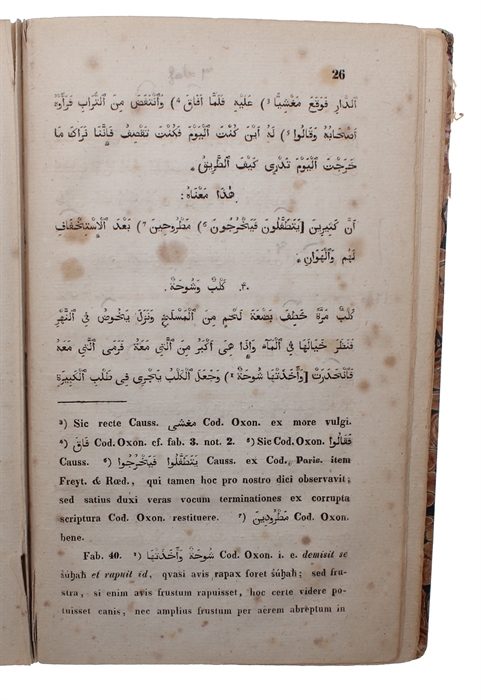 26
ٱلدَّارِ فَوَقَعَ مَغْشِيًّا ³) عَلَيْهِ فَلَمَّا أَفَاقَ ⁴) وَٱنْتَفَضَ مِنَ ٱلتُّرَابِ فَرَآوْهُ
أَصْحَابُهُ وَقَالُوا ⁵) لَهُ أَيْنَ كُنْتَ ٱلْيَوْمَ فَكُنْتَ تَقْصِفُ فَإِنَّنَا نَرَاكَ مَا
خَرَجْتَ ٱلْيَوْمَ تَدْرِى كَيْفَ ٱلطَّرِيقُ ۞
هٰذَا مَعْنَاهُ:
أَنَّ كَثِيرِينَ [يَتَطَفَّلُونَ فَيَخْرُجُونَ ⁶) مَطْرُوحِينَ ⁷) بَعْدَ ٱلْإِسْتِخْفَافِ
لَهُمْ وَٱلْهَوَانِ ۞
۴۰. كَلْبٌ وَشُوحَةٌ.
كَلْبٌ مَرَّةً خَطِفَ بَضْعَةَ لَحْمٍ مِنَ ٱلْمَسْلَخِ وَنَزَلَ يَخُوضُ فِى ٱلنَّهْرِ
فَنَظَرَ خَيَالَهَا فِى ٱلْمَاءِ وَإِذَا هِىَ أَكْبَرُ مِنَ ٱلَّتِى مَعَهُ فَرَمَى ٱلَّتِى مَعَهُ
فَٱنْحَدَرَتْ [وَأَخَذَتْهَا شُوحَةٌ ¹) وَجَعَلَ ٱلْكَلْبُ يَجْرِى فِى طَلَبِ ٱلْكَبِيرَةِ
³) Sic recte Causs. مغشى Cod. Oxon. ex more vulgi.
⁴) فَاقَ Cod. Oxon. cf. fab. 3. not. 2. ⁵) Sic Cod. Oxon. فَقَالُوا
Causs. ⁶) يَتَطَفَّلُوا فَيَخْرُجُوا Causs. ex Cod. Paris. item
Freyt. & Rœd., qui tamen hoc pro nostro dici observavit;
sed satius duxi veras vocum terminationes ex corrupta
scriptura Cod. Oxon. restituere. ⁷) مَطْرُودِينَ Cod. Oxon.
bene.
Fab. 40. ¹) شُوحَةٌ وَأَخَذَتْهَا Cod. Oxon. i. e. demisit se
šúḥah et rapuit id, qvasi avis rapax foret šúḥah; sed fru-
stra, si enim avis frustum rapuisset, hoc certe videre po-
tuisset canis, nec amplius frustum per aerem abreptum in